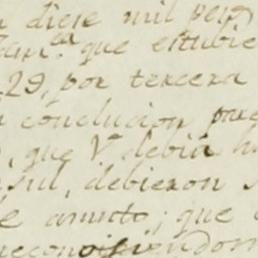 diese mil pe
que estubie
29, por tercera
conclucion pare
, que V. debia h
sul, debieron s
e asunto; que
reconosiendom